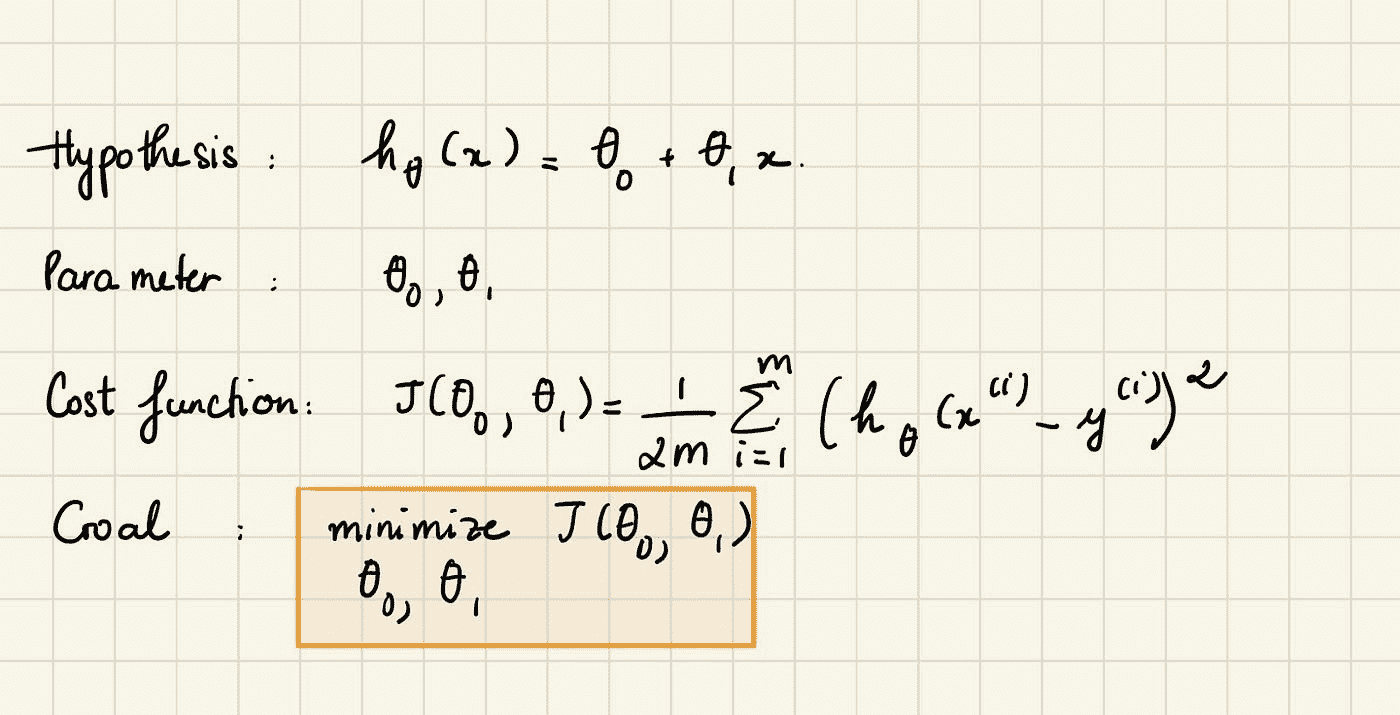 Hypothesis : h_θ(x) = θ_0 + θ_1 x.
Parameter : θ_0, θ_1
Cost function: J(θ_0, θ_1) = \frac{1}{2m} \sum_{i=1}^{m} (h_θ(x^{(i)} - y^{(i)})^2
Goal : minimize J(θ_0, θ_1)
θ_0, θ_1